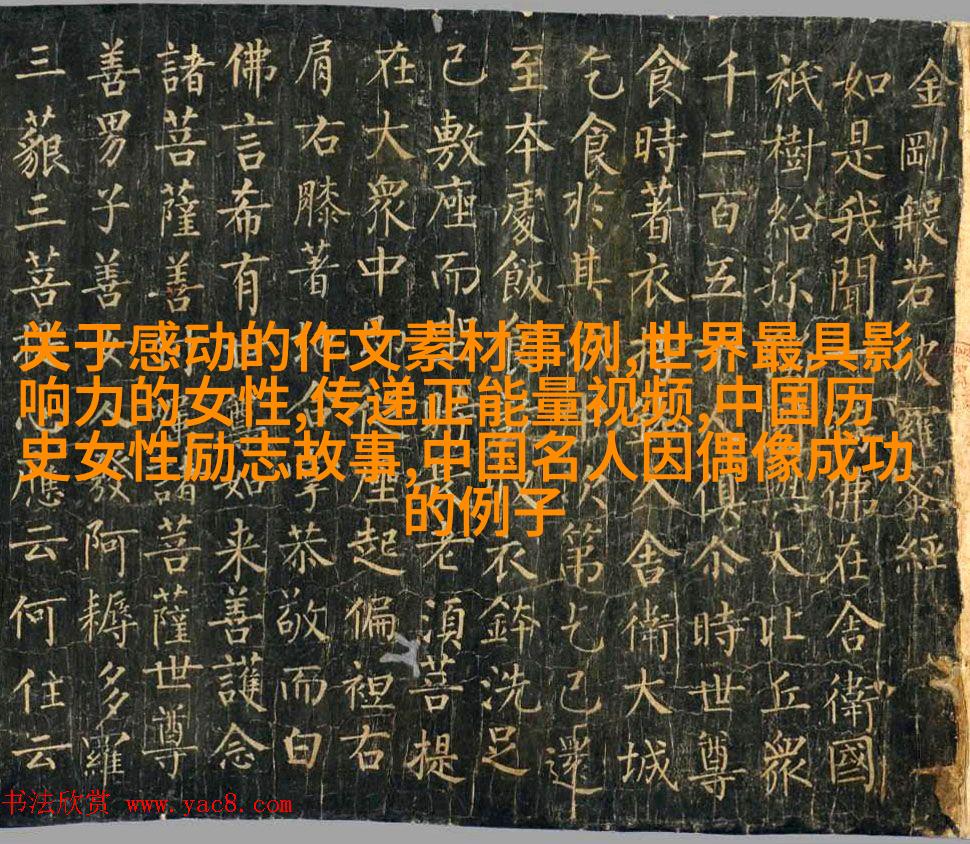 金剛般若波羅蜜經
如是我聞佛在舍衛國
祇樹給孤大比丘衆
千二百五俱尒時世尊
食時著衣入舍衛大城
乞食於其次第乞已還
至本處飯衣鉢洗足
已敷座而坐老須菩提
在大衆中座起偏袒右
肩右膝著地合掌恭敬而白
佛言希有如来善護念
諸菩薩善諸菩薩世尊
善男子善女人發阿耨多羅
三藐三菩應云何住云
关于感动的作文素材事例,世界最具影
响力的女性,传递正能量视频,中国历
史女性励志故事,中国名人因偶像成功
的例子
书法欣赏 www.yac8.com